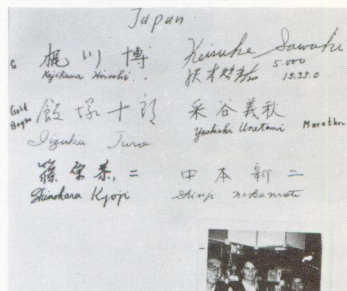 Japan
G 梶川博
Kajikawa Hiroshi
Keisuke Sawaki
5.000
13.33.0
飯塚十郎
Iizuka Juro
采谷義秋
Yoshiaki Unetani Marathon
Shinohara Kyoji
中本新二
Shinji Nakamoto